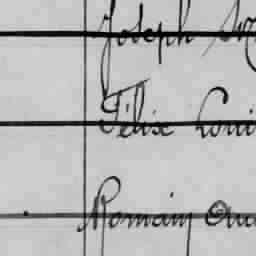 Joseph
Félix Loui
Romain